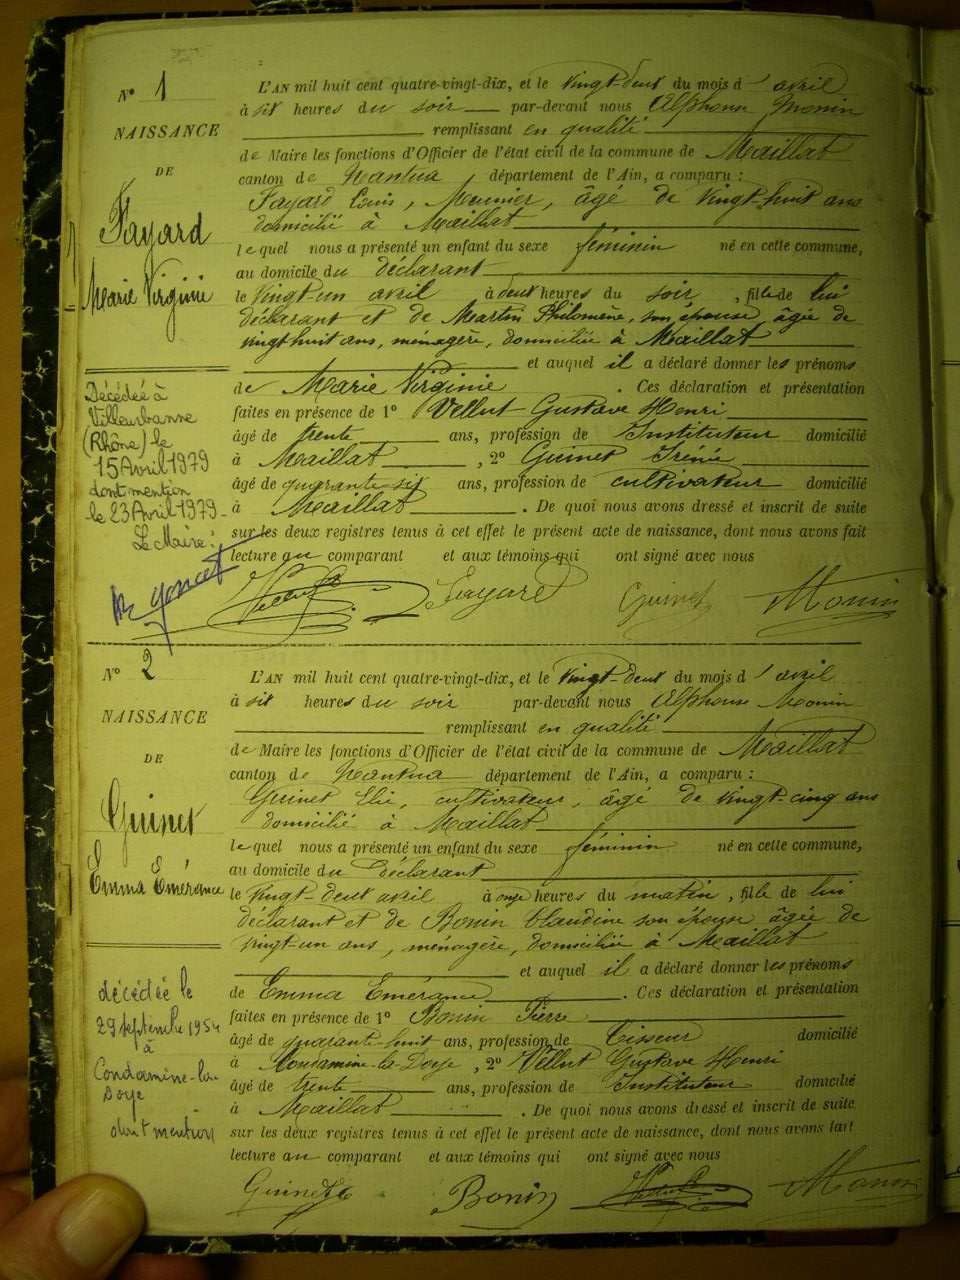 N° 1
NAISSANCE
DE
Fayard
Marie Virginie
Décédée à
Villeurbanne
(Rhône) le
15 Avril 1979
dont mention
le 23 Avril 1979
Le Maire :
L'AN mil huit cent quatre-vingt-dix, et le vingt-deux du mois d'avril
à six heures du soir par-devant nous Alphonse Monin
remplissant en qualité
de Maire les fonctions d'Officier de l'état civil de la commune de Maillat
canton de Nantua département de l'Ain, a comparu :
Fayard Louis, Meunier, âgé de vingt-huit ans
domicilié à Maillat
lequel nous a présenté un enfant du sexe féminin né en cette commune,
au domicile du déclarant
le vingt-un avril à deux heures du soir, fille de lui
déclarant et de Martin Philomène, son épouse, âgée de
vingt huit ans, ménagère, domiciliée à Maillat
et auquel il a déclaré donner les prénoms
de Marie Virginie. Ces déclaration et présentation
faites en présence de 1° Vellut Gustave Henri
âgé de trente ans, profession de Instituteur domicilié
à Maillat, 2° Guinet Irénée
âgé de quarante six ans, profession de cultivateur domicilié
à Maillat. De quoi nous avons dressé et inscrit de suite
sur les deux registres tenus à cet effet le présent acte de naissance, dont nous avons fait
lecture au comparant et aux témoins qui ont signé avec nous
Vellut Fayard Guinet Monin
N° 2
NAISSANCE
DE
Guinet
Emma Emérance
décédée le
29 septembre 1954
à
Condamine-la-
Doye
dont mention
L'AN mil huit cent quatre-vingt-dix, et le vingt-deux du mois d'avril
à six heures du soir par-devant nous Alphonse Monin
remplissant en qualité
de Maire les fonctions d'Officier de l'état civil de la commune de Maillat
canton de Nantua département de l'Ain, a comparu :
Guinet Elie, cultivateur, âgé de vingt-cinq ans
domicilié à Maillat
lequel nous a présenté un enfant du sexe féminin né en cette commune,
au domicile du déclarant
le vingt-deux avril à onze heures du matin, fille de lui
déclarant et de Bonin Claudine son épouse âgée de
vingt-un ans, ménagère, domiciliée à Maillat
et auquel il a déclaré donner les prénoms
de Emma Emérance. Ces déclaration et présentation
faites en présence de 1° Bonin Pierre
âgé de quarante-huit ans, profession de Tisseur domicilié
à Condamine-la-Doye, 2° Vellut Gustave Henri
âgé de trente ans, profession de Instituteur domicilié
à Maillat. De quoi nous avons dressé et inscrit de suite
sur les deux registres tenus à cet effet le présent acte de naissance, dont nous avons fait
lecture au comparant et aux témoins qui ont signé avec nous
Guinet Bonin Vellut Monin